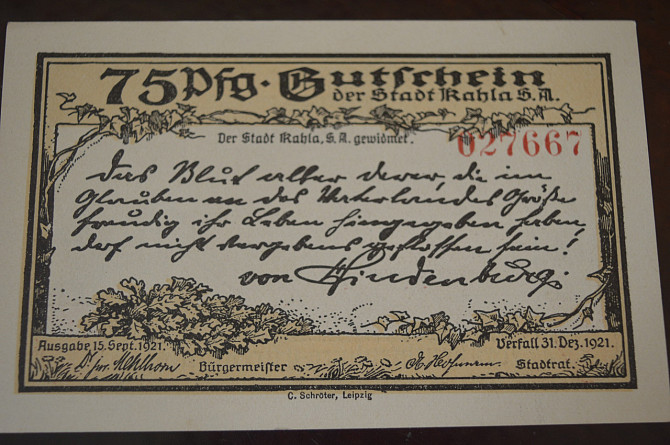 75 Pfg. Gutschein
der Stadt Kahla S.A.
Der Stadt Kahla, S.A. gewidmet.
027667
Das Blut aller derer, die im
Glauben an des Vaterlandes Größe
freudig ihr Leben hingegeben haben,
darf nicht vergebens geflossen sein!
von Hindenburg.
Ausgabe 15. Sept. 1921.
Verfall 31. Dez. 1921.
Dr. jur. Bürgermeister
Stadtrat.
C. Schröter, Leipzig